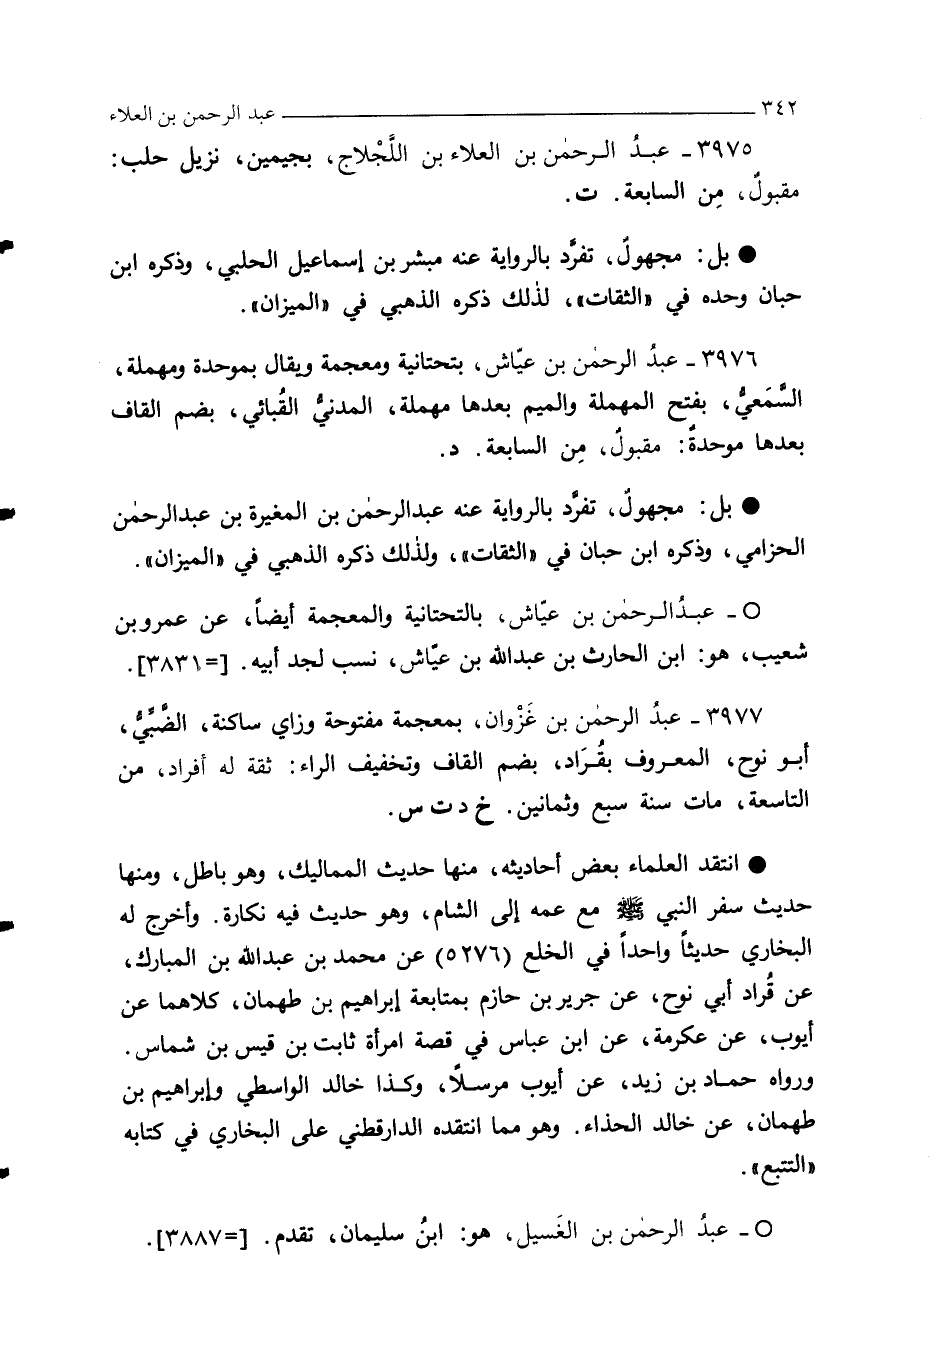 ٣٤٢ عبد الرحمن بن العلاء
٣٩٧٥ - عبـدُ الـرحمٰن بن العلاء بن اللَّجْلاج، بجيمين، نزيل حلب:
مقبولٌ، مِن السابعة. ت.
● بل: مجهولٌ، تفرَّد بالرواية عنه مبشر بن إسماعيل الحلبي، وذكره ابن
حبان وحده في «الثقات»، لذٰلك ذكره الذهبي في «الميزان».
٣٩٧٦ - عبدُ الرحمٰن بن عيّاش، بتحتانية ومعجمة ويقال بموحدة ومهملة،
السَّمَعيُّ، بفتح المهملة والميم بعدها مهملة، المدنيُّ القُبائي، بضم القاف
بعدها موحدةٌ: مقبولٌ، مِن السابعة. د.
● بل: مجهولٌ، تفرَّد بالرواية عنه عبدالرحمٰن بن المغيرة بن عبدالرحمٰن
الحزامي، وذكره ابن حبان في «الثقات»، ولذٰلك ذكره الذهبي في «الميزان».
○ - عبـدُالـرحمٰن بن عيّاش، بالتحتانية والمعجمة أيضاً، عن عمرو بن
شعيب، هو: ابن الحارث بن عبدالله بن عيّاش، نسب لجد أبيه. [=٣٨٣١].
٣٩٧٧ - عبدُ الرحمٰن بن غَزْوان، بمعجمة مفتوحة وزاي ساكنة، الضَّبِّيُّ،
أبـو نوح، المعـروف بقُـرَاد، بضم القاف وتخفيف الراء: ثقة له أفراد، من
التاسعة، مات سنة سبع وثمانين. خ د ت س.
● انتقد العلماء بعض أحاديثه، منها حديث المماليك، وهو باطل، ومنها
حديث سفر النبي ﷺ مع عمه إلى الشام، وهو حديث فيه نكارة. وأخرج له
البخاري حديثاً واحداً في الخلع (٥٢٧٦) عن محمد بن عبدالله بن المبارك،
عن قُراد أبي نوح، عن جرير بن حازم بمتابعة إبراهيم بن طهمان، كلاهما عن
أيوب، عن عكرمة، عن ابن عباس في قصة امرأة ثابت بن قيس بن شماس.
ورواه حمـاد بن زيد، عن أيوب مرسلاً، وكـذا خالد الواسطي وإبراهيم بن
طهمان، عن خالد الحذاء. وهو مما انتقده الدارقطني على البخاري في كتابه
«التتبع».
○ - عبدُ الرحمٰن بن الغَسيل، هو: ابنُ سليمان، تقدم. [=٣٨٨٧].